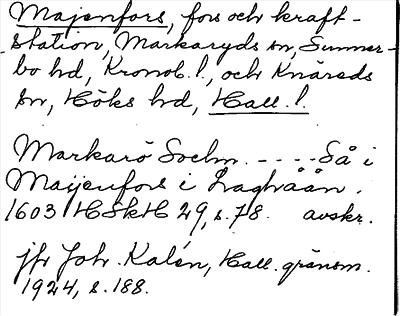 Majenfors, fors och kraft-
station, Markaryds sn, Sunner-
bo hd, Kronob. l., och Knäreds
sn, Höks hd, Hall. l.
Markarö Sochn. - - - - Så i
Majenfors i Laghåån.
1603 HSkH 29, s. 78. avskr.
jfr Joh. Kalén, Hall. gränsm.
1924, s. 188.